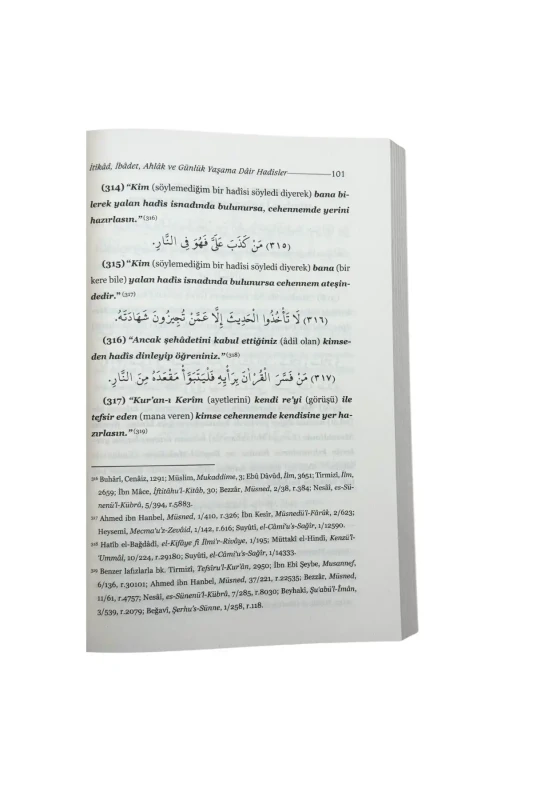 İtikâd, İbâdet, Ahlâk ve Günlük Yaşama Dâir Hadisler 101
(314) “Kim (söylemediğim bir hadîsi söyledi diyerek) bana bi-
lerek yalan hadis isnadında bulunursa, cehennemde yerini
hazırlasın.”(316)
(٣١٥) مَنْ كَذَبَ عَلَيَّ فَهُوَ فِي النَّارِ.
(315) “Kim (söylemediğim bir hadîsi söyledi diyerek) bana (bir
kere bile) yalan hadis isnadında bulunursa cehennem ateşin-
dedir.”(317)
(٣١٦) لَا تَأْخُذُوا الْحَدِيثَ إِلَّا عَمَّنْ تُجِيزُونَ شَهَادَتَهُ.
(316) “Ancak şehâdetini kabul ettiğiniz (âdil olan) kimse-
den hadis dinleyip öğreniniz.”(318)
(٣١٧) مَنْ فَسَّرَ الْقُرْاٰنَ بِرَأْيِهِ فَلْيَتَبَوَّأْ مَقْعَدَهُ مِنَ النَّارِ.
(317) “Kur'an-ı Kerîm (ayetlerini) kendi re'yi (görüşü) ile
tefsir eden (mana veren) kimse cehennemde kendisine yer ha-
zırlasın.”(319)
316 Buhârî, Cenâiz, 1291; Müslim, Mukaddime, 3; Ebû Dâvûd, İlm, 3651; Tirmizî, İlm,
2659; İbn Mâce, İftitâhu'l-Kitâb, 30; Bezzâr, Müsned, 2/38, r.384; Nesâî, es-Sü-
nenü'l-Kübrâ, 5/394, r.5883.
317 Ahmed ibn Hanbel, Müsned, 1/410, r.326; İbn Kesîr, Müsnedü'l-Fârûk, 2/623;
Heysemî, Mecma'u'z-Zevâid, 1/142, r.616; Suyûtî, el-Câmi'u's-Sağîr, 1/12590.
318 Hatîb el-Bağdâdî, el-Kifâye fî İlmi'r-Rivâye, 1/195; Müttakî el-Hindî, Kenzü'l-
'Ummâl, 10/224, r.29180; Suyûtî, el-Câmi'u's-Sağîr, 1/14333.
319 Benzer lafızlarla bk. Tirmizî, Tefsîru'l-Kur'ân, 2950; İbn Ebî Şeybe, Musannef,
6/136, r.30101; Ahmed ibn Hanbel, Müsned, 37/221, r.22535; Bezzâr, Müsned,
11/61, r.4757; Nesâî, es-Sünenü'l-Kübrâ, 7/285, r.8030; Beyhakî, Şu'abü'l-Îmân,
3/539, r.2079; Beğavî, Şerhu's-Sünne, 1/258, r.118.